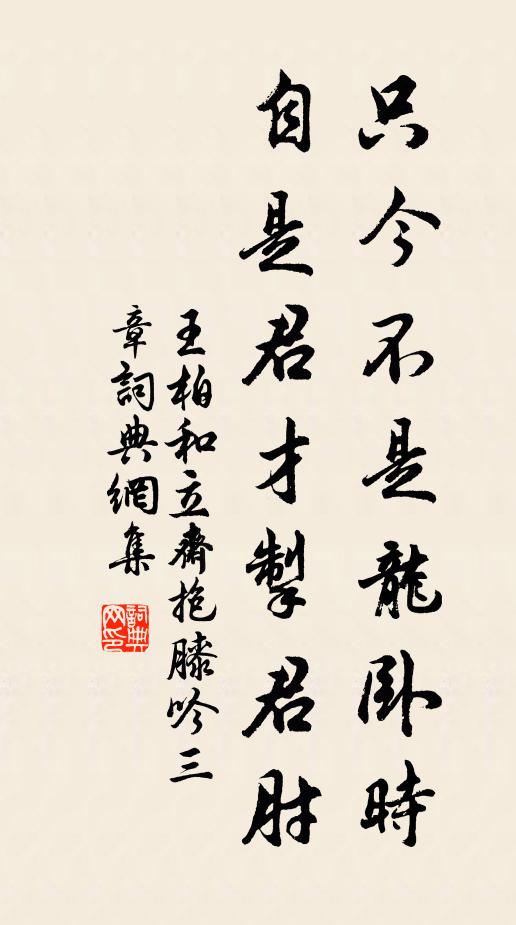 只今不是龍臥時
自是君才掣君肘
王柏和立齋抱膝吟三
章詞典網集
詞典網印